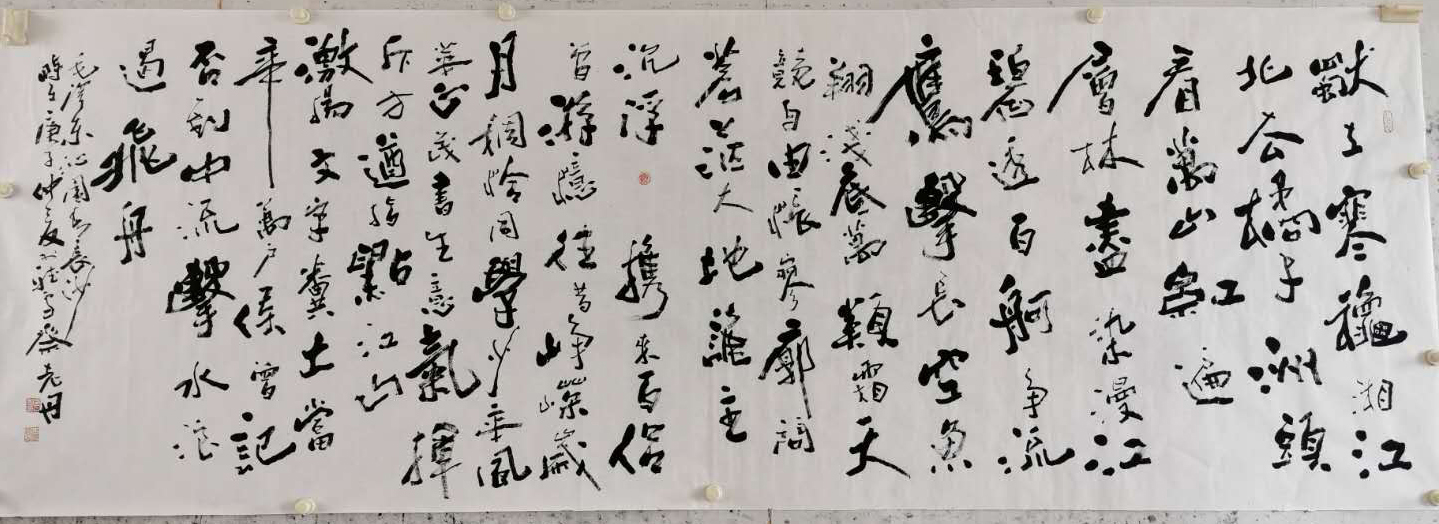 獨立寒穐湘江
北去橘子洲頭
看萬山紅遍
層林盡染漫江
碧透百舸争流
鷹擊長空魚
翔淺底萬類霜天
競自由悵寥廓問
蒼茫大地誰主
沉浮 携来百侣
曾游憶往昔崢嶸歲
月稠恰同學少年風
華正茂書生意氣揮
斥方遒指點江山
激揚文字糞土當
年萬户侯曾記
否到中流擊水浪
遏飛舟
毛澤東沁園春長沙
時在庚子仲夏齋老丹